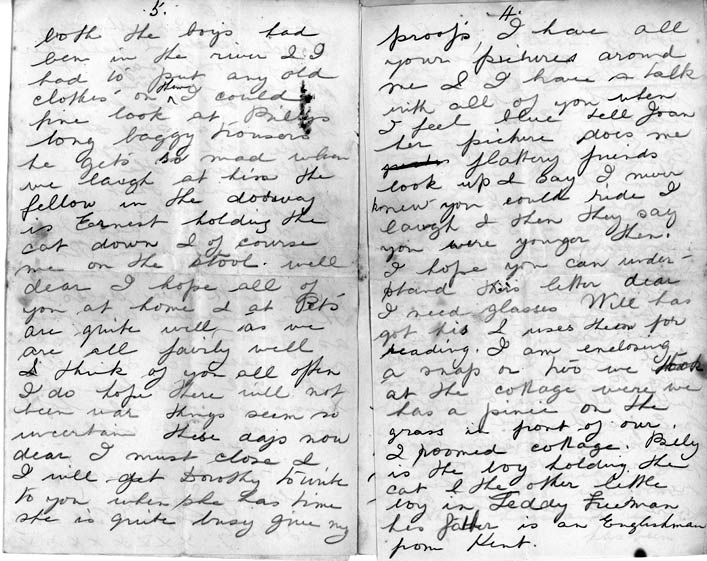 5.
both the boys had
ben in the river & I
had to put any old
clothes on them & I could
fine look at Billys
long baggy trousers
he gets so mad when
we laugh at him the
fellow in the doorway
is Earnest holding the
cat down & of course
me on the stool. well
dear I hope all of
you at home & at
are quite well as we
are all fairly well
I think of you all often
I do hope there will not
been war things seem so
uncertain these days now
dear I must close &
I will get Dorothy to write
to you when she has time
she is quite busy give my
4.
proofs I have all
your pictures around
me & I have a talk
with all of you when
I feel blue tell Joan
her picture does me
flattery friends
look up & say I never
knew you could ride I
laugh & then they say
you were younger then.
I hope you can under-
stand this letter dear
I need glasses Will has
got his & uses them for
reading. I am enclosing
a snap or two we took
at the cottage were we
has a picnic on the
grass in front of our.
2 roomed cottage. Billy
is the boy holding the
cat & the other little
boy is Teddy Freeman
his father is an Englishman
from Kent.